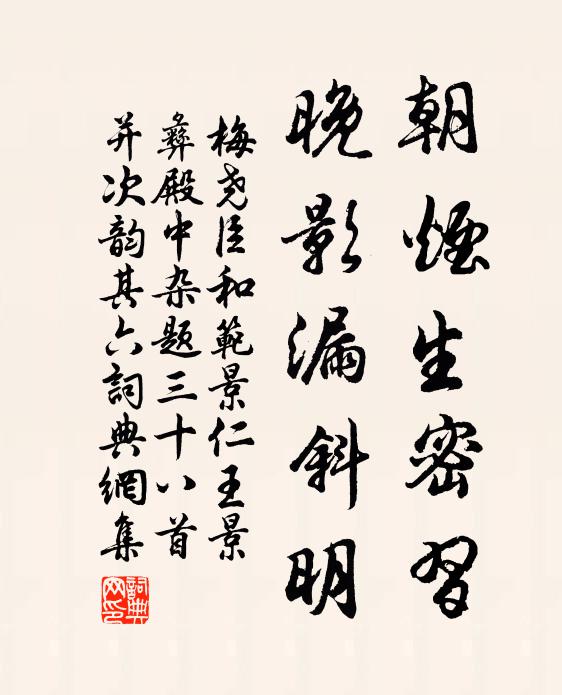 朝煙生密習
晚影漏斜明
梅尧臣和範景仁王景
彝殿中杂题三十八首
并次韵其六詞典網集
詞典网印